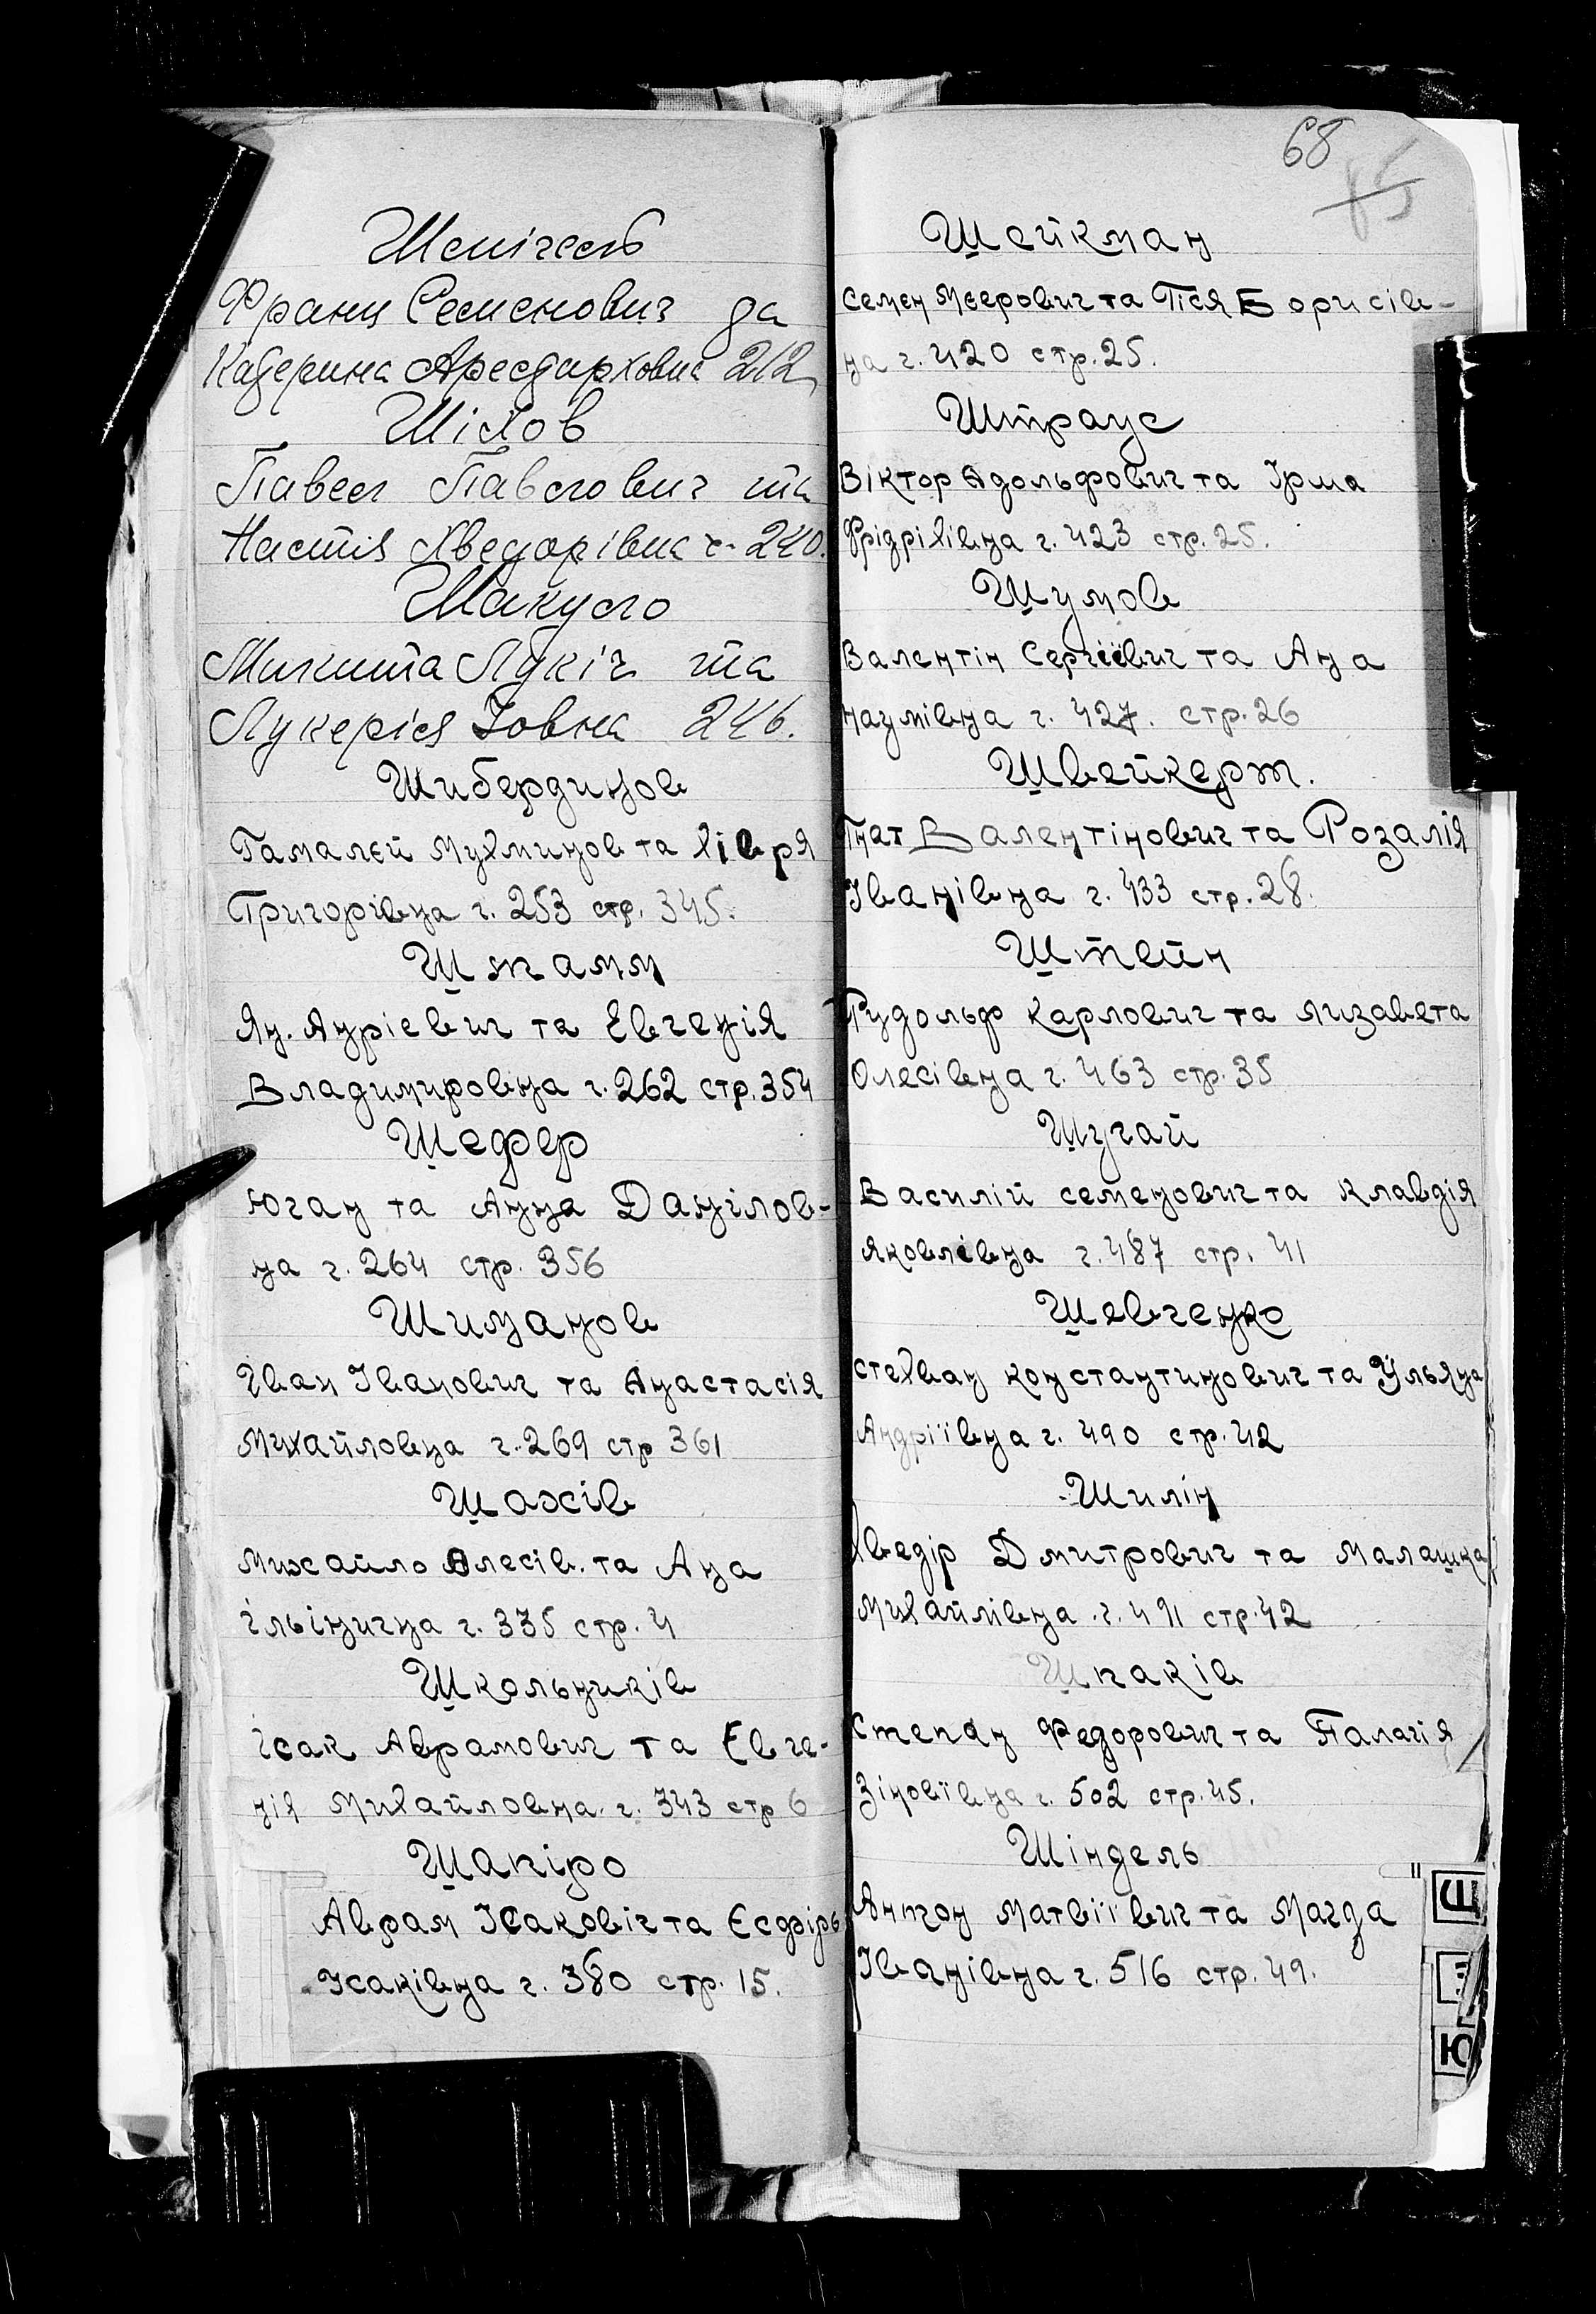 Шпігель
Франц Семенович да
Катерина Арестарховна 212,
Шіхов
Павел Павлович та
Настя Хведорівна ч. 240.
Шакуло
Микита Лукіч та
Лукерія Іовна 246.
Шибердинов
Гамалєй Мухминов та
Григорівна ч. 253 стр. 345.
Штамм
Ян. Андрієвич та Євгенія
Владимировна ч. 262 стр. 354
Шефер
Юган та Анна Данілов-
на ч. 264 стр. 356
Шиманов
Іван Іванович та Анастасія
Михайловна ч. 269 стр 361
Шахів
Михайло Олесів. та Ана
ільінична ч. 335 стр. 4
Школьників
ісак Аврамович та Євге-
нія Михайловна ч. 343 стр 6
Шапіро
Аврам Ісаковіч та Єсфірь
Ісаківна ч. 380 стр. 15.
68
85
Шейкман
Семен Мєерович та Піся Борисів-
на ч. 420 стр. 25.
Штраус
Віктор Адольфович та Ірма
Фрідрихівна ч. 423 стр. 25.
Шумов
Валентін Сергіёвич та Ана
Наумівна ч. 427. стр. 26
Швейкерт.
Гнат Валентінович та Розалія
Іванівна ч. 433 стр. 28.
Штейн
Рудольф Карлович та Лизавета
Олесівна ч. 463 стр. 35
Шугай
Василій Семенович та Клавдія
Яковлівна ч. 487 стр. 41
Шевченко
Стехван Константинович та Ульяна
Андріївна ч. 490 стр. 42
Шилін
Хведір Дмитрович та Малашка
Михайлівна ч. 491 стр. 42
Шпаків
Степан Федорович та Палагія
Зіновіївна ч. 502 стр. 45.
Шіндель
Антон Матвіївич та Магда
Іванівна ч. 516 стр. 49.
Щ
Э
Ю